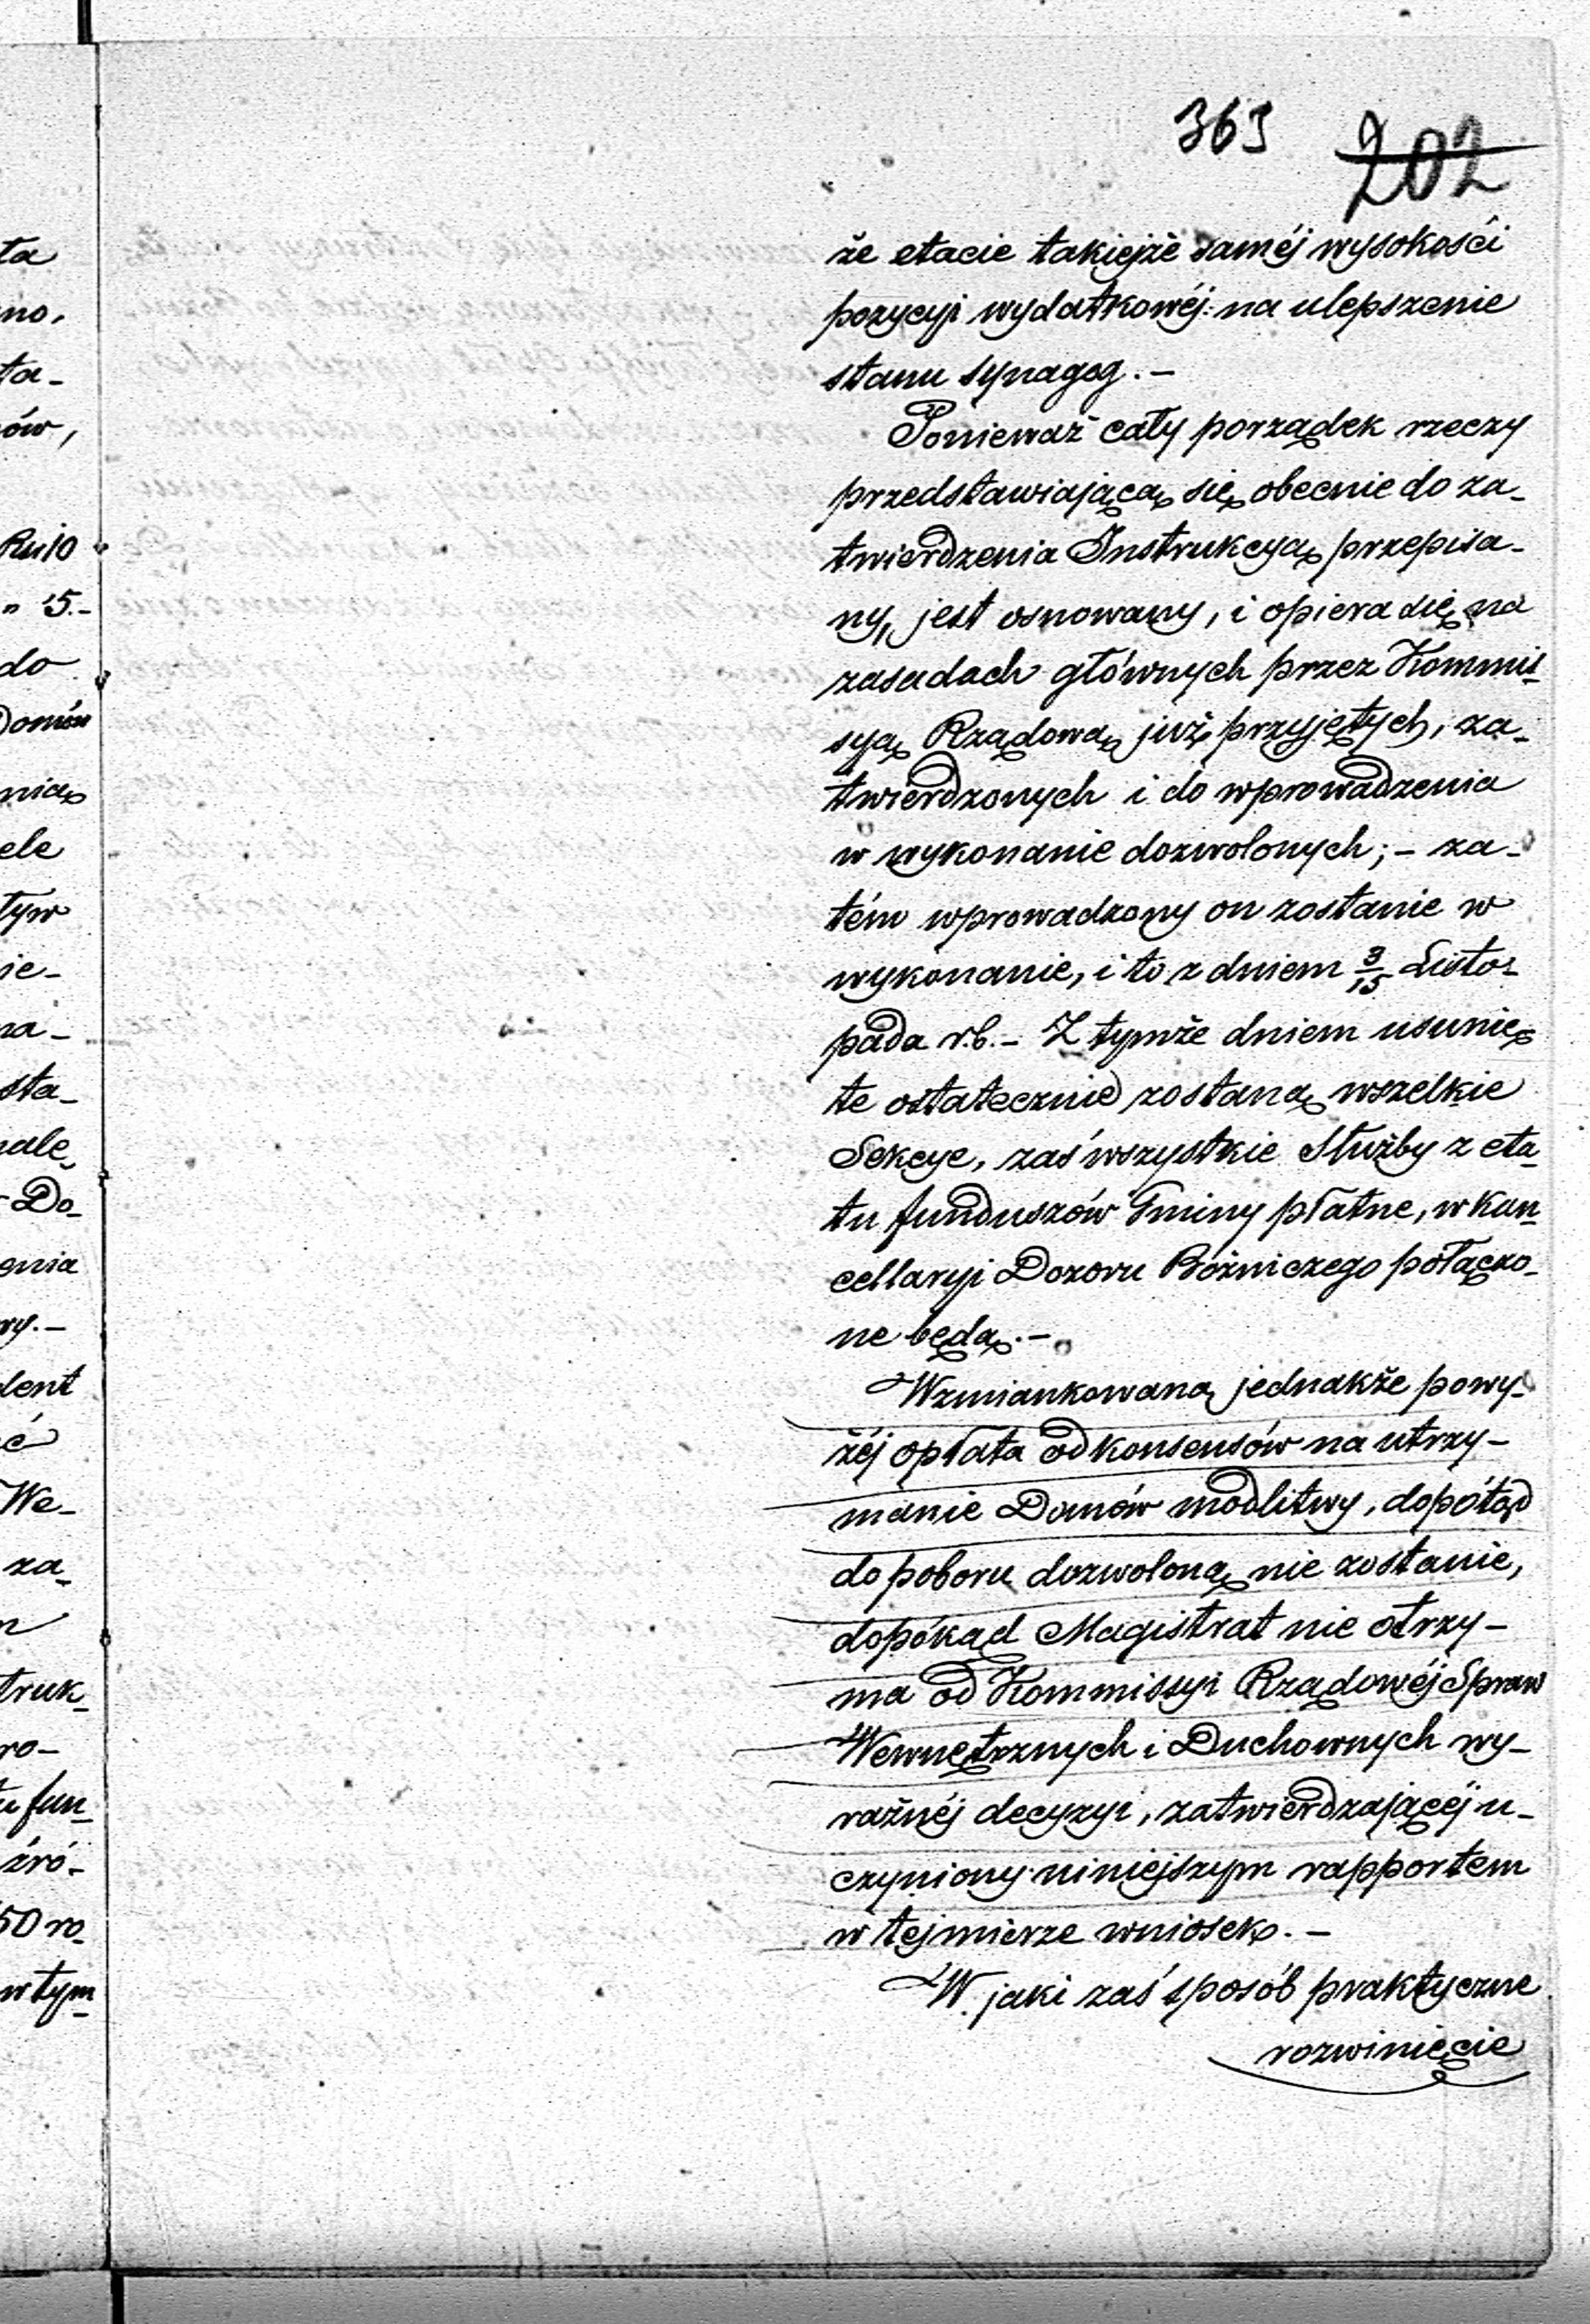 ta
no,
ta-
ów,
Rs 10
" 15.-
do
Domów
nią
ele
tyw
ie-
na-
sta-
nale,
Do-
enia
wy.-
dent
ć
We-
za-
truk-
ro-
fun-
źró-
50 ro-
w tym
363 202
że etacie takiejże saméj wysokości
pozycyi wydatkowéj: na ulepszenie
stanu synagog.-
Ponieważ cały porządek rzeczy
przedstawiającą się obecnie do za-
twierdzenia Instrukcyą przepisa-
ny, jest osnowany, i opiera się na
zasadach głównych przez Kommis-
syą Rządową już przyjętych, za-
twierdzonych i do wprowadzenia
w wykonanie dozwolonych;- za-
tém wprowadzony on zostanie w
wykonanie, i to z dniem 3/15 Listo-
pada r.b.- Z tymże dniem usunię-
te ostatecznie zostaną wszelkie
Sekcye, zaś wszystkie Służby z eta-
tu funduszów Gminy płatne, w Kan-
cellaryi Dozoru Bóżniczego połączo-
ne będą.-
Wzmiankowaną jednakże powy-
żéj opłata od konsensów na utrzy-
manie Domów modlitwy, dopótąd
do poboru dozwoloną nie zostanie,
dopókąd Magistrat nie otrzy-
ma od Kommissyi Rządowéj Spraw
Wewnętrznych i Duchownych wy-
raźnéj decyzyi, zatwierdzającéj u-
czyniony niniejszym rapportem
w tej mierze wniosek.-
W jaki zaś sposób praktyczne
rozwinięcie